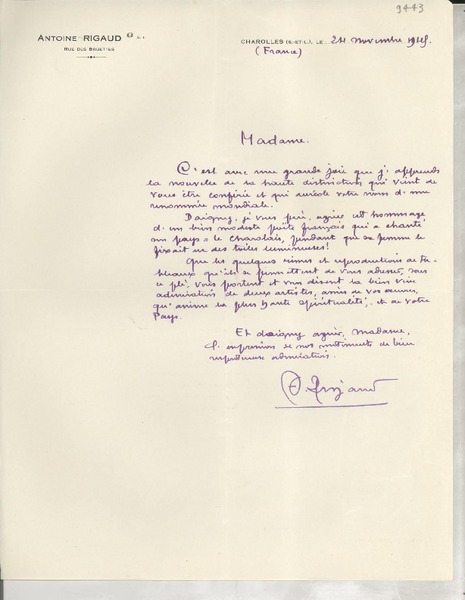 9443
ANTOINE RIGAUD
RUE DES BRUETTES
CHAROLLES (S.-ET-L.), LE 24 novembre 1945.
(France)
Madame.
C'est avec une grande joie que j'apprends
la nouvelle de la haute distinction qui vient de
vous être conférée et qui auréole votre nom d'une
renommée mondiale.
Daignez, je vous prie, agréer cet hommage
d'un bien modeste poète français qui a chanté
son pays "le Charolais, pendant que sa femme le
fixait en des toiles lumineuses!
Que les quelques rimes et reproductions de ta-
bleaux qu'ils se permettent de vous adresser, sous
ce pli, vous portent et vous disent la bien vive
admiration de deux artistes, amis de vos œuvres,
qu'anime la plus haute spiritualité, et de votre
Pays.
Et daignez agréer, Madame,
l'expression de nos sentiments de bien
respectueuse admiration.
A. Rigaud